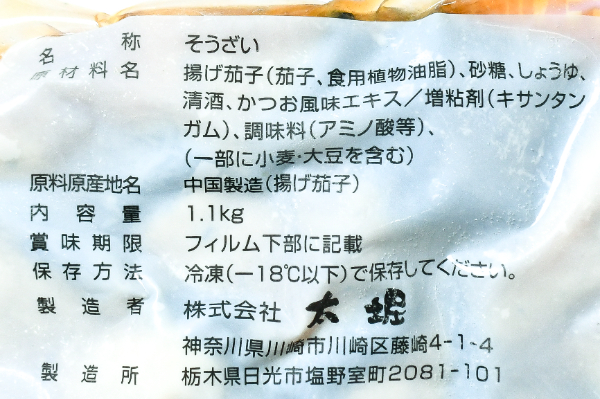 名称 そうざい
原材料名 揚げ茄子(茄子、食用植物油脂)、砂糖、しょうゆ、
清酒、かつお風味エキス／増粘剤(キサンタン
ガム)、調味料(アミノ酸等)、
(一部に小麦・大豆を含む)
原料原産地名 中国製造(揚げ茄子)
内容量 1.1kg
賞味期限 フィルム下部に記載
保存方法 冷凍(－18℃以下)で保存してください。
製造者 株式会社 太堀
神奈川県川崎市川崎区藤崎4-1-4
製造所 栃木県日光市塩野室町2081-101